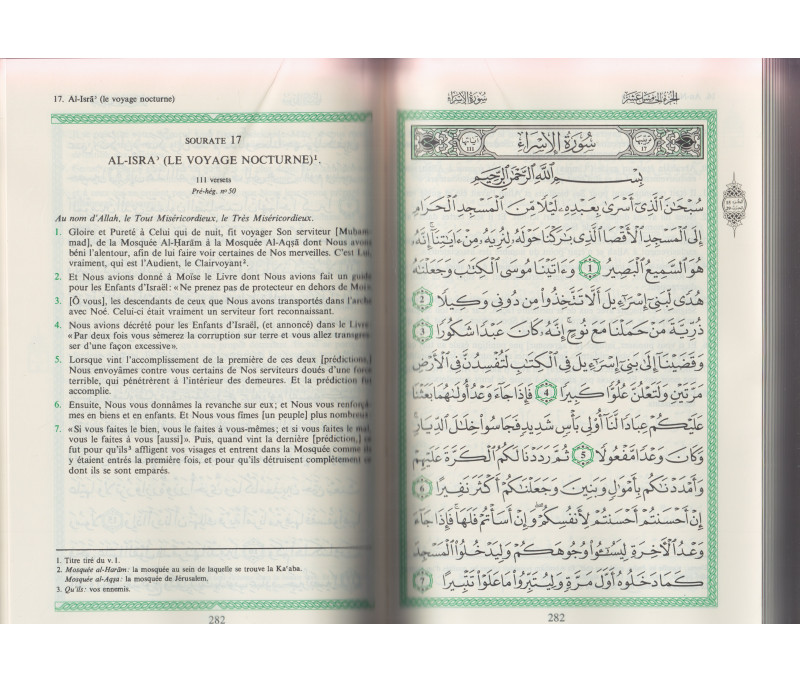 17. Al-Isrā' (le voyage nocturne)
SOURATE 17
AL-ISRA' (LE VOYAGE NOCTURNE)1.
111 versets
Pré-hég. n° 50
Au nom d'Allah, le Tout Miséricordieux, le Très Miséricordieux.
1. Gloire et Pureté à Celui qui de nuit, fit voyager Son serviteur [Muham-
mad], de la Mosquée Al-Ḥarām à la Mosquée Al-Aqṣā dont Nous avons
béni l'alentour, afin de lui faire voir certaines de Nos merveilles. C'est Lui,
vraiment, qui est l'Audient, le Clairvoyant2.
2. Et Nous avions donné à Moïse le Livre dont Nous avions fait un guide
pour les Enfants d'Israël: «Ne prenez pas de protecteur en dehors de Moi».
3. [Ô vous], les descendants de ceux que Nous avons transportés dans l'arche
avec Noé. Celui-ci était vraiment un serviteur fort reconnaissant.
4. Nous avions décrété pour les Enfants d'Israël, (et annoncé) dans le Livre:
«Par deux fois vous sèmerez la corruption sur terre et vous allez transgres-
ser d'une façon excessive».
5. Lorsque vint l'accomplissement de la première de ces deux [prédictions,]
Nous envoyâmes contre vous certains de Nos serviteurs doués d'une force
terrible, qui pénétrèrent à l'intérieur des demeures. Et la prédiction fut
accomplie.
6. Ensuite, Nous vous donnâmes la revanche sur eux; et Nous vous renforçâ-
mes en biens et en enfants. Et Nous vous fîmes [un peuple] plus nombreux:
7. «Si vous faites le bien, vous le faites à vous-mêmes; et si vous faites le mal,
vous le faites à vous [aussi]». Puis, quand vint la dernière [prédiction,] ce
fut pour qu'ils3 affligent vos visages et entrent dans la Mosquée comme ils
y étaient entrés la première fois, et pour qu'ils détruisent complètement ce
dont ils se sont emparés.
1. Titre tiré du v. 1.
2. Mosquée al-Harām: la mosquée au sein de laquelle se trouve la Ka'aba.
Mosquée al-Aqṣa: la mosquée de Jérusalem.
3. Qu'ils: vos ennemis.
282
سُورَةُ الإِسْرَاء
الجزء الخامس عشر
سُورَةُ الإِسْرَاءِ
بِسْمِ اللَّهِ الرَّحْمَٰنِ الرَّحِيمِ
سُبْحَانَ الَّذِي أَسْرَىٰ بِعَبْدِهِ لَيْلًا مِّنَ الْمَسْجِدِ الْحَرَامِ
إِلَى الْمَسْجِدِ الْأَقْصَا الَّذِي بَارَكْنَا حَوْلَهُ لِنُرِيَهُ مِنْ ءَايَاتِنَا إِنَّهُ
هُوَ السَّمِيعُ الْبَصِيرُ ١ وَءَاتَيْنَا مُوسَى الْكِتَابَ وَجَعَلْنَاهُ
هُدًى لِّبَنِي إِسْرَاءِيلَ أَلَّا تَتَّخِذُوا مِن دُونِي وَكِيلًا ٢
ذُرِّيَّةَ مَنْ حَمَلْنَا مَعَ نُوحٍ إِنَّهُ كَانَ عَبْدًا شَكُورًا ٣
وَقَضَيْنَا إِلَىٰ بَنِي إِسْرَاءِيلَ فِي الْكِتَابِ لَتُفْسِدُنَّ فِي الْأَرْضِ
مَرَّتَيْنِ وَلَتَعْلُنَّ عُلُوًّا كَبِيرًا ٤ فَإِذَا جَاءَ وَعْدُ أُولَاهُمَا بَعَثْنَا
عَلَيْكُمْ عِبَادًا لَّنَا أُولِي بَأْسٍ شَدِيدٍ فَجَاسُوا خِلَالَ الدِّيَارِ
وَكَانَ وَعْدًا مَّفْعُولًا ٥ ثُمَّ رَدَدْنَا لَكُمُ الْكَرَّةَ عَلَيْهِمْ
وَأَمْدَدْنَاكُم بِأَمْوَالٍ وَبَنِينَ وَجَعَلْنَاكُمْ أَكْثَرَ نَفِيرًا ٦
إِنْ أَحْسَنتُمْ أَحْسَنتُمْ لِأَنفُسِكُمْ وَإِنْ أَسَأْتُمْ فَلَهَا فَإِذَا جَاءَ
وَعْدُ الْآخِرَةِ لِيَسُـُٔوا وُجُوهَكُمْ وَلِيَدْخُلُوا الْمَسْجِدَ
كَمَا دَخَلُوهُ أَوَّلَ مَرَّةٍ وَلِيُتَبِّرُوا مَا عَلَوْا تَتْبِيرًا ٧
282